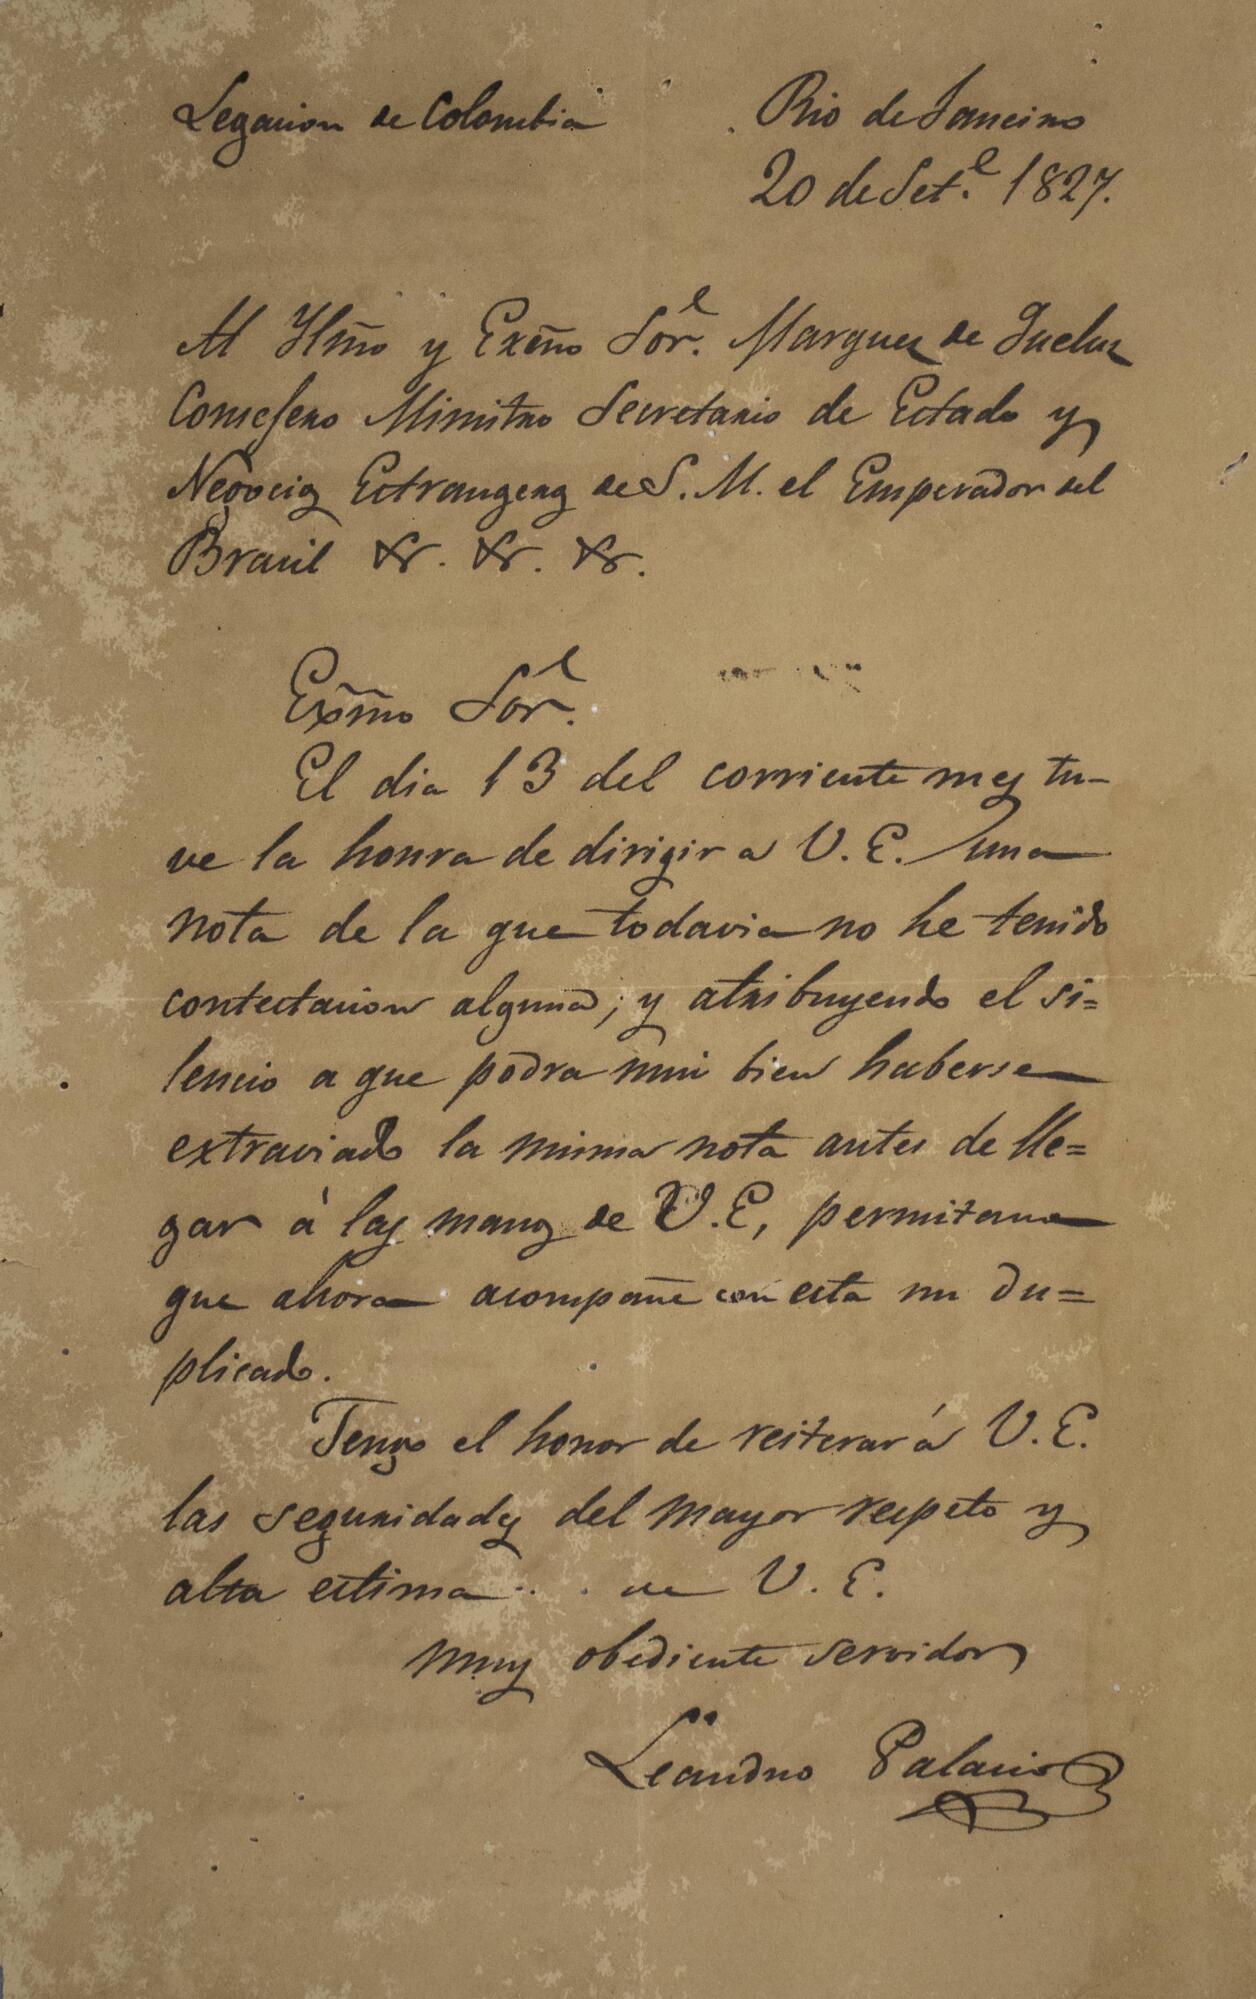 Legacion de Colombia
Rio de Janeiro
20 de Set.e 1827.
Al Ilmo y Exmo Sor. Marquez de Queluz
Consejero Ministro Secretario de Estado y
Negocios Estrangeros de S. M. el Emperador del
Brasil &. &. &.
Exmo Sor.
El dia 13 del corriente mes tu-
ve la honra de dirigir a V. E. una
nota de la que todavia no he tenido
contestacion alguna; y atribuyendo el si=
lencio a que podra mui bien haberse
extraviado la misma nota antes de lle=
gar á las manos de V. E, permitame
que ahora acompañe con esta un du=
plicado.
Tengo el honor de reiterar á V. E.
las seguridades del mayor respeto y
alta estima de V. E.
muy obediente servidor
Leandro Palacios